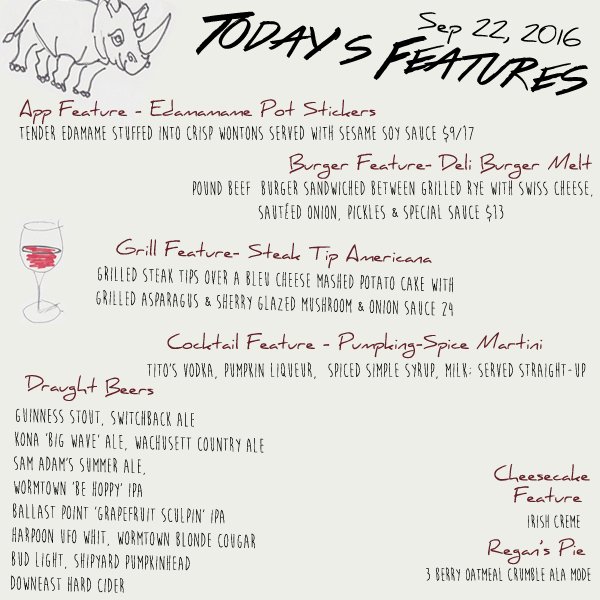 Sep 22, 2016
Today's Features
App Feature - Edamamame Pot Stickers
TENDER EDAMAME STUFFED INTO CRISP WONTONS SERVED WITH SESAME SOY SAUCE $9/17
Burger Feature- Deli Burger Melt
POUND BEEF BURGER SANDWICHED BETWEEN GRILLED RYE WITH SWISS CHEESE,
SAUTÉED ONION, PICKLES & SPECIAL SAUCE $13
Grill Feature- Steak Tip Americana
GRILLED STEAK TIPS OVER A BLEU CHEESE MASHED POTATO CAKE WITH
GRILLED ASPARAGUS & SHERRY GLAZED MUSHROOM & ONION SAUCE 24
Cocktail Feature - Pumpking-Spice Martini
TITO'S VODKA, PUMPKIN LIQUEUR, SPICED SIMPLE SYRUP, MILK; SERVED STRAIGHT-UP
Draught Beers
GUINNESS STOUT, SWITCHBACK ALE
KONA 'BIG WAVE' ALE, WACHUSETT COUNTRY ALE
SAM ADAM'S SUMMER ALE,
WORMTOWN 'BE HOPPY' IPA
BALLAST POINT 'GRAPEFRUIT SCULPIN' IPA
HARPOON UFO WHIT, WORMTOWN BLONDE COUGAR
BUD LIGHT, SHIPYARD PUMPKINHEAD
DOWNEAST HARD CIDER
Cheesecake
Feature
IRISH CREME
Regan's Pie
3 BERRY OATMEAL CRUMBLE ALA MODE